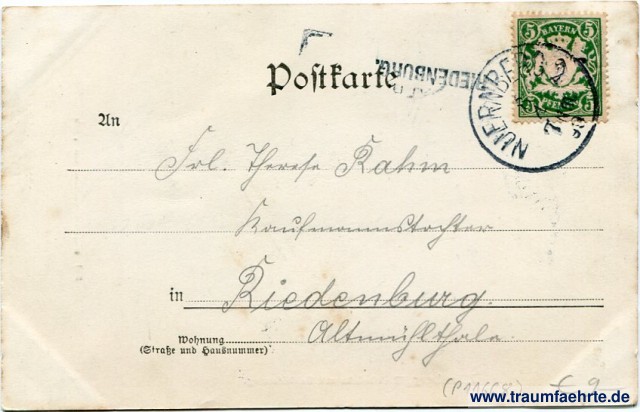 5 BAYERN 5
5 PFENNIG 5
NUERNBERG 2
RIEDENBURG.
Postkarte
An
Frl. Therese Rahm
Kaufmannstochter
in Riedenburg.
Altmühlthale.
Wohnung
(Straße und Hausnummer)
www.traumfaehrte.de